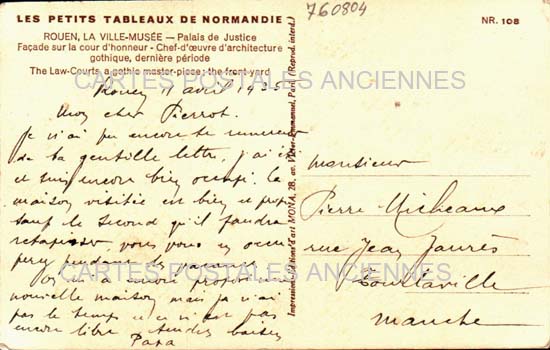 LES PETITS TABLEAUX DE NORMANDIE
ROUEN, LA VILLE-MUSÉE — Palais de Justice
Façade sur la cour d'honneur - Chef-d'œuvre d'architecture
gothique, dernière période
The Law-Courts a gothic master-piece: the front yard
Rouen 11 avril 1935
Mon cher Pierrot.
Je n'ai pu encore te remercier
de ta gentille lettre, j'ai été
et suis encore bien occupé. La
maison visitée est bien et
sauf le second qu'il faudra
retapisser, vous vous en occu
perez pendant les vacances
On m'a encore proposé une
nouvelle maison mais je n'ai
pas le temps et n'est pas
encore libre. Tendres baisers
Papa
760804
NR. 108
Monsieur
Pierre Micheaux
rue Jean Jaurès
Tourlaville
Manche
CARTES POSTALES ANCIENNES
CARTES POSTALES ANCIENNES
d'art MONA, 2B, av. Victor-Emmanuel, Paris (Reprod. interd.)